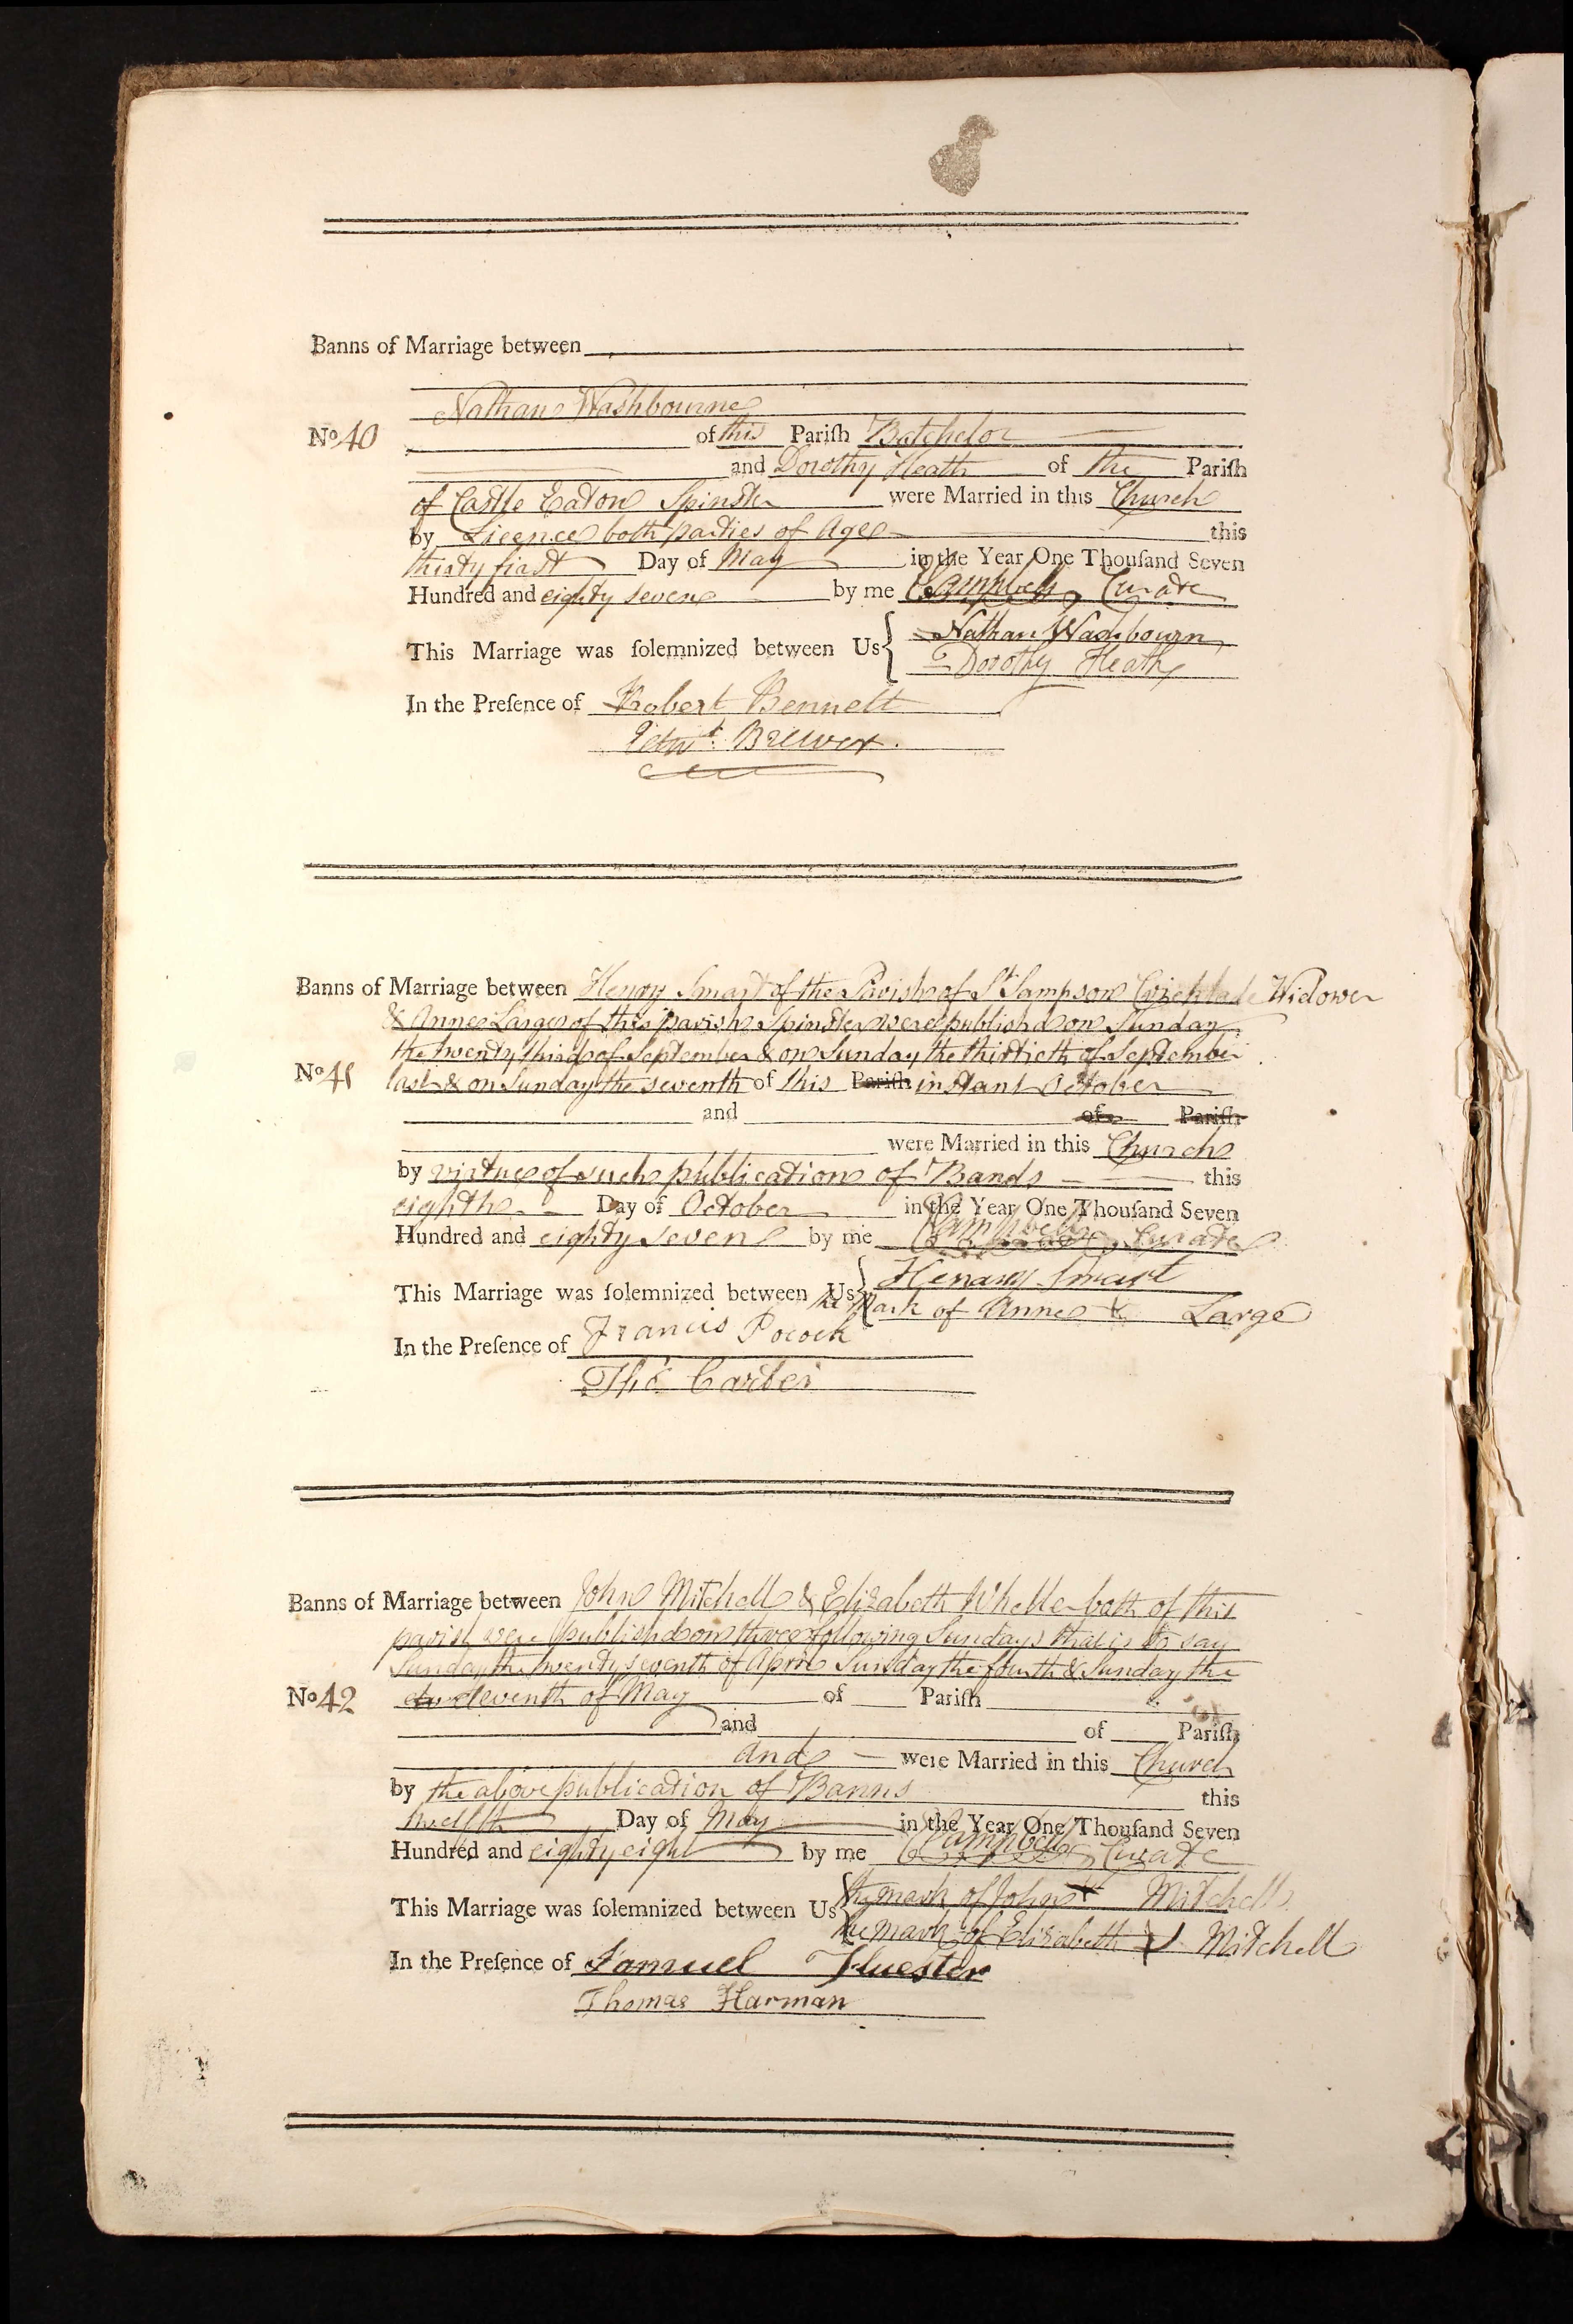 Banns of Marriage between
Nathan Washbourne
No 40 of this Pariſh Batchelor
and Dorothy Heath of the Pariſh
of Castle Eaton Spinster were Married in this Church
by Licence both parties of Age this
thirty first Day of May in the Year One Thouſand Seven
Hundred and eighty seven by me Campbell, Curate
This Marriage was ſolemnized between Us Nathan Washbourn
Dorothy Heath
In the Preſence of Robert Bennett
Edwd. Brewer.
Banns of Marriage between Henry Smart of the Parish of St Sampson Cricklade Widower
& Anne Large of this parish Spinster were publishd on Sunday
the twenty third of September & on Sunday the thirtieth of September
No 41 last & on Sunday the seventh of this Pariſh instant October
and of Pariſh
were Married in this Church
by virtue of such publication of Bands this
eighth Day of October in the Year One Thouſand Seven
Hundred and eighty seven by me Campbell, Curate
This Marriage was ſolemnized between Us Henary Smart
the Mark of Anne Large
In the Preſence of Francis Pocock
Tho Carter
Banns of Marriage between John Mitchell & Elizabeth Wheller both of this
parish were publishd on three following Sundays that is to say
Sunday the twenty seventh of April Sunday the fourth & Sunday the
No 42 eleventh of May of Pariſh
and of Pariſh
and were Married in this Church
by the above publication of Banns this
twelfth Day of May in the Year One Thouſand Seven
Hundred and eighty eight by me Campbell, Curate
This Marriage was ſolemnized between Us the mark of John Mitchell
the mark of Elizabeth Mitchell
In the Preſence of Samuel Huester
Thomas Harman